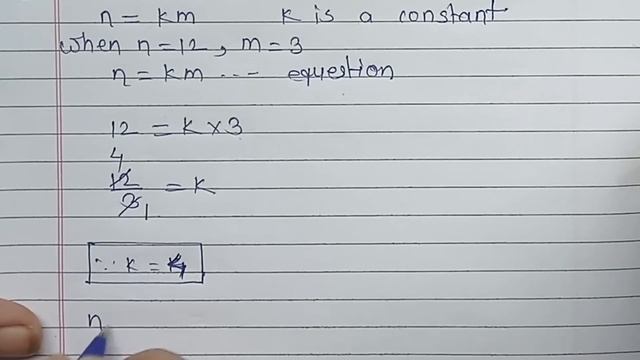 n = km K is a constant
when n = 12, m = 3
n = km --- equestion
12 = K × 3
4
12/3 1 = K
∵ K = 4
n